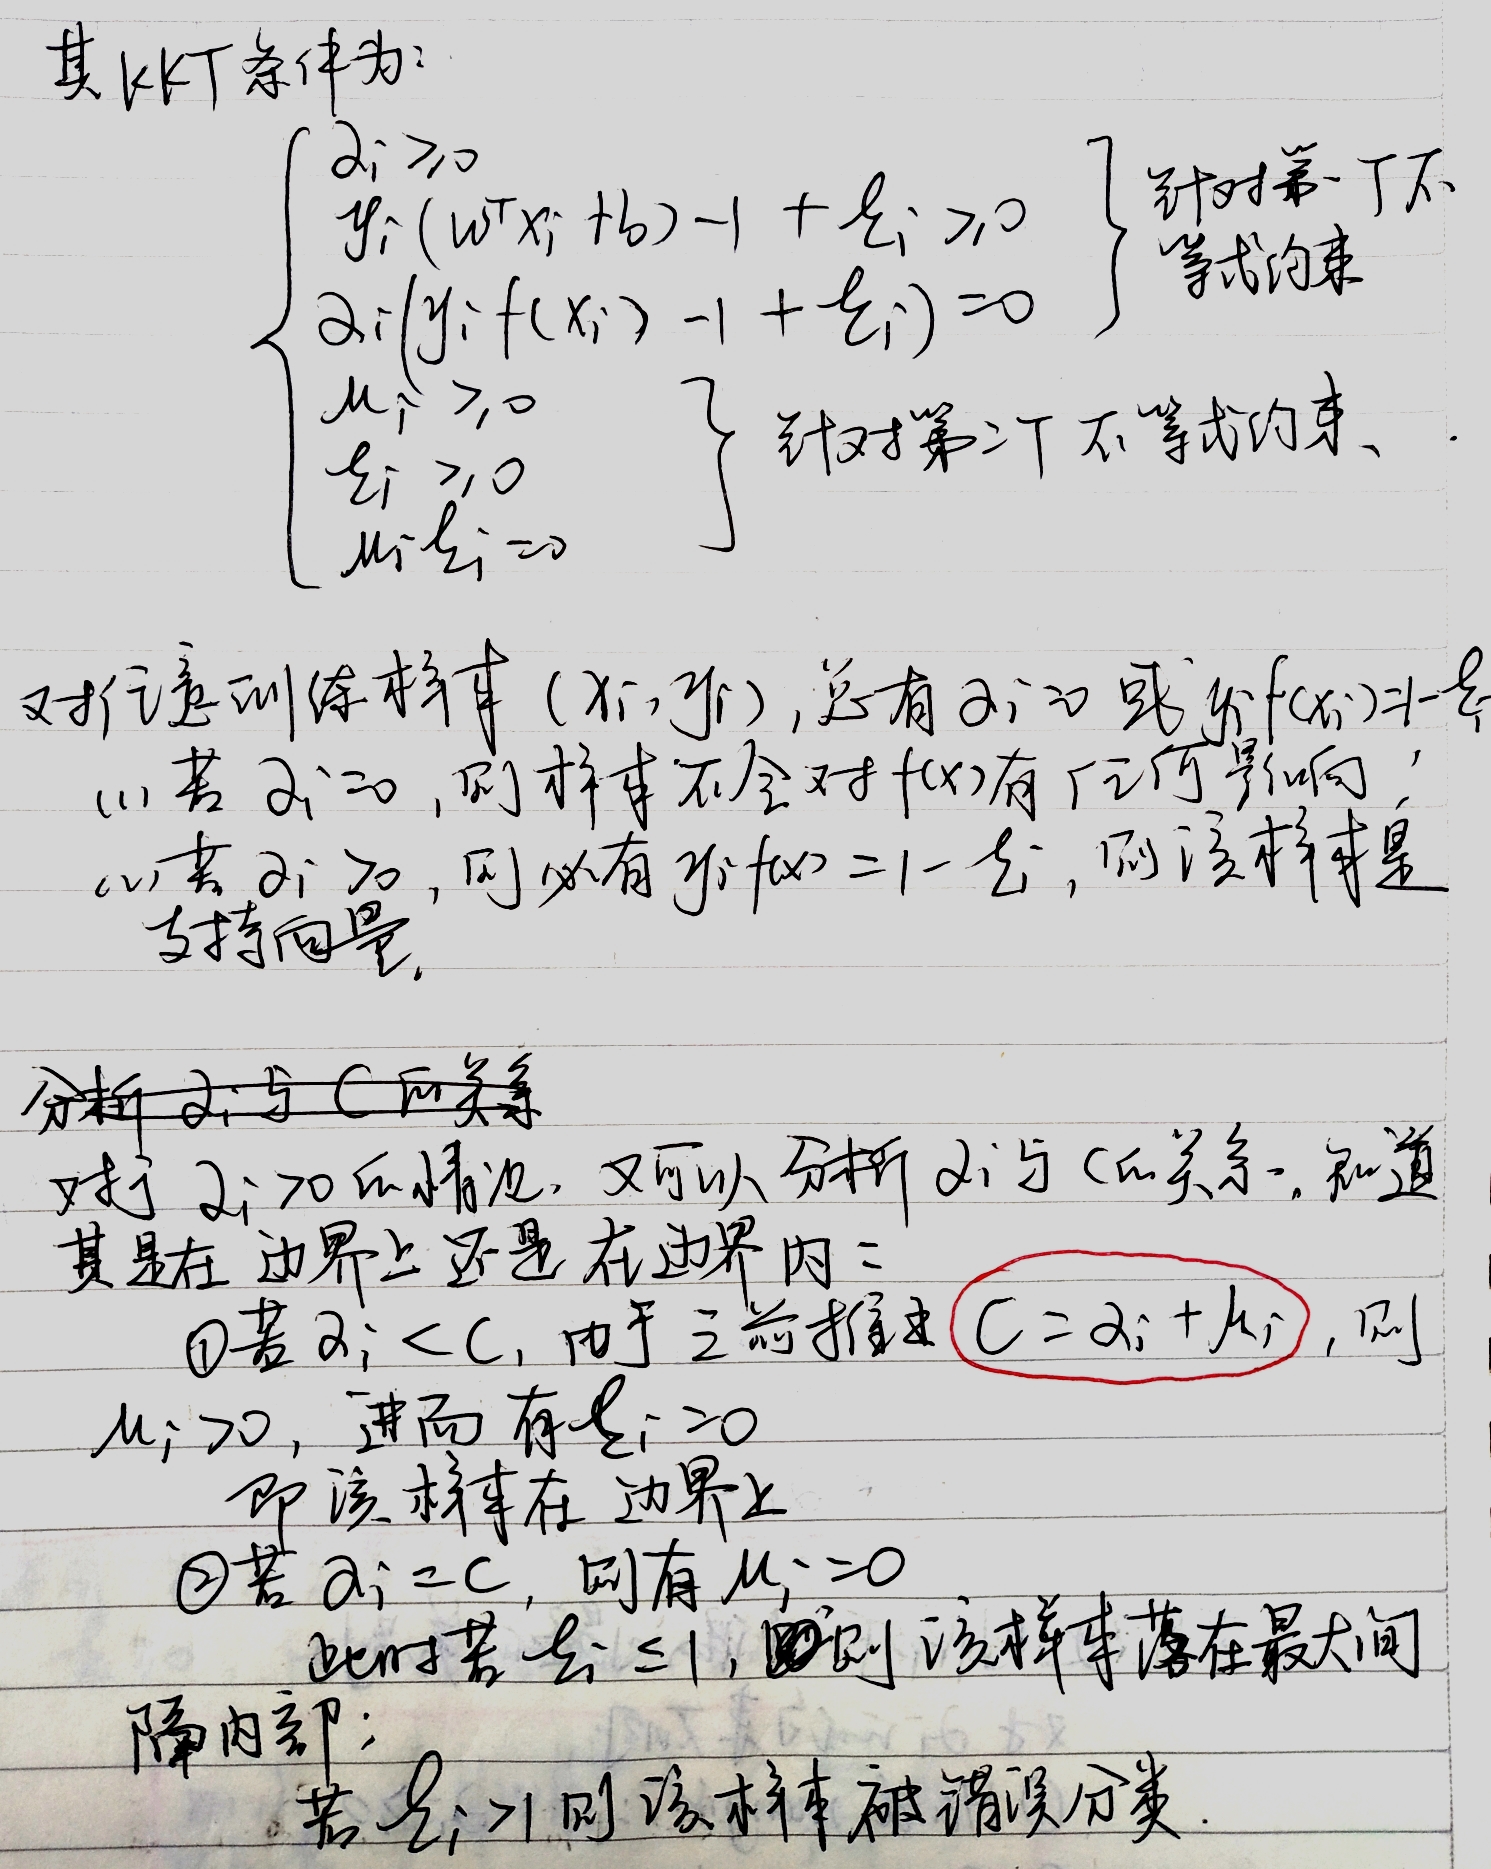 其KKT条件为:
αi ≥ 0
yi(wᵀxi + b) - 1 + ξi ≥ 0
针对第一个不等式约束
αi(yi f(xi) - 1 + ξi) = 0
μi ≥ 0
针对第二个不等式约束、
ξi ≥ 0
μi ξi = 0
对任意训练样本 (xi, yi), 总有 αi = 0 或 yi f(xi) = 1 - ξi
(1) 若 αi = 0, 则样本不会对 f(x) 有任何影响;
(2) 若 αi > 0, 则必有 yi f(x) = 1 - ξi, 则该样本是
支持向量.
分析 αi 与 C 的关系
对于 αi > 0 的情况. 又可以分析 αi 与 C 的关系, 知道
其是在边界上还是在边界内:
①若 αi < C, 由于之前推出 C = αi + μi, 则
μi > 0, 进而有 ξi = 0
即该样本在边界上
②若 αi = C, 则有 μi = 0
此时若 ξi ≤ 1, 则该样本落在最大间
隔内部;
若 ξi > 1 则该样本被错误分类.